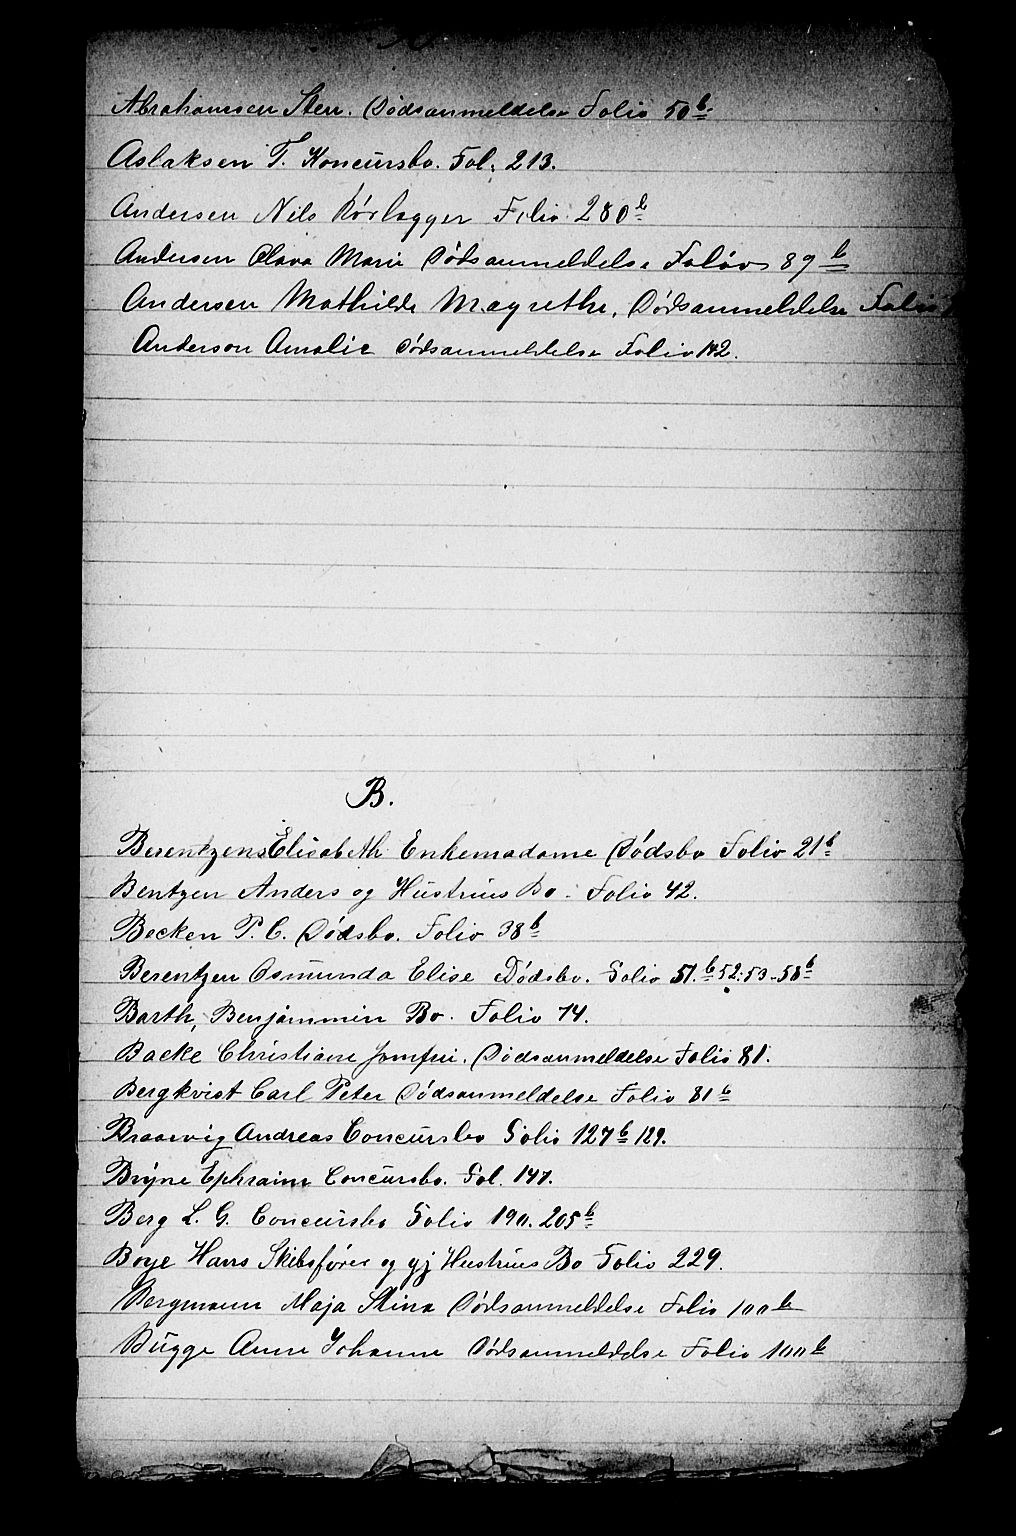 Abrahamsen Sten. Dødsanmeldelse Folio 50b.
Aslaksen T. Koncursbo. Fol. 213.
Andersen Nils Rørlægger Folio 280b
Andersen Olava Marie Dødsanmeldelse Folio 89b
Andersen Mathilde Magrethe, Dødsanmeldelse Folio
Anderson Amalie Dødsanmeldelse Folio 142.
B.
Berentzens Elisabeth Enkemadame Dødsbo Folio 21b
Bentzen Anders og Hustrues Bo. Folio 42.
Becken P. C. Dødsbo. Folio 38b
Berentzen Osmunda Elise Dødsbo. Folio 51.b 52: 53-58b
Barth, Benjammin Bo. Folio 74.
Backe Christiane Jomfru. Dødsanmeldelse Folio 81.
Bergkvist Carl Peter Dødsanmeldelse Folio 81b
Braarvig Andreas Concursbo Folio 127b 129.
Bryne Ephraim Concursbo. Fol. 147.
Berg L. G. Concursbo Folio 190. 205b
Boye Hans Skibsfører og gj Hustrues Bo Folio 229.
Bergmann Maja Stina Dødsanmeldelse Folio 100b
Bugge Anne Johanne Dødsanmeldelse Folio 100b